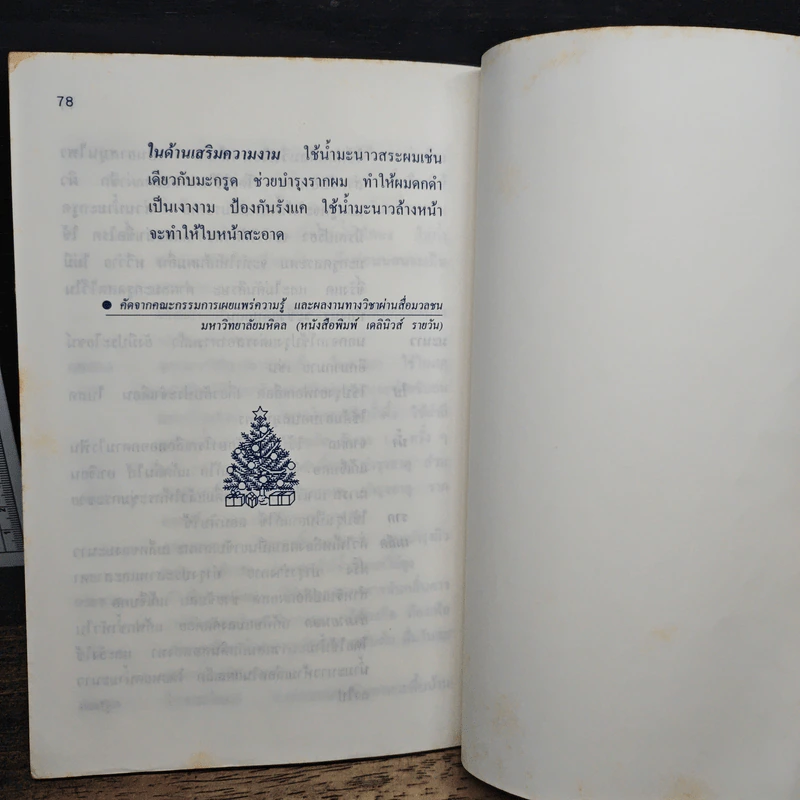 78
ในด้านเสริมความงาม ใช้น้ำมะนาวสระผมเช่น
เดียวกับมะกรูด ช่วยบำรุงรากผม ทำให้ผมดกดำ
เป็นเงางาม ป้องกันรังแค ใช้น้ำมะนาวล้างหน้า
จะทำให้ใบหน้าสะอาด
● คัดจากคณะกรรมการเผยแพร่ความรู้ และผลงานทางวิชาผ่านสื่อมวลชน
มหาวิทยาลัยมหิดล (หนังสือพิมพ์ เดลินิวส์ รายวัน)